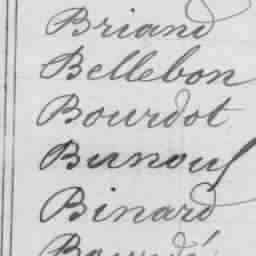 Briand
Bellebon
Bourdot
Bunouf
Binard
Bourdé